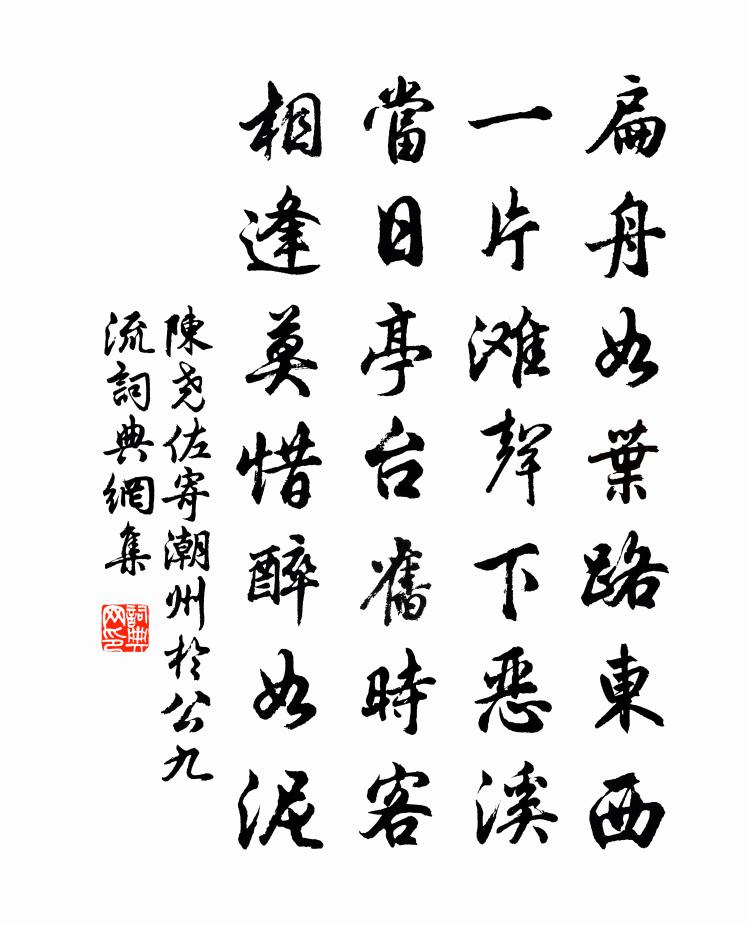 扁舟如葉路東西
一片滩聲下惡溪
當日亭台舊時客
相逢莫惜醉如泥
陳堯佐寄潮州於公九
流詞典網集
詞典网印